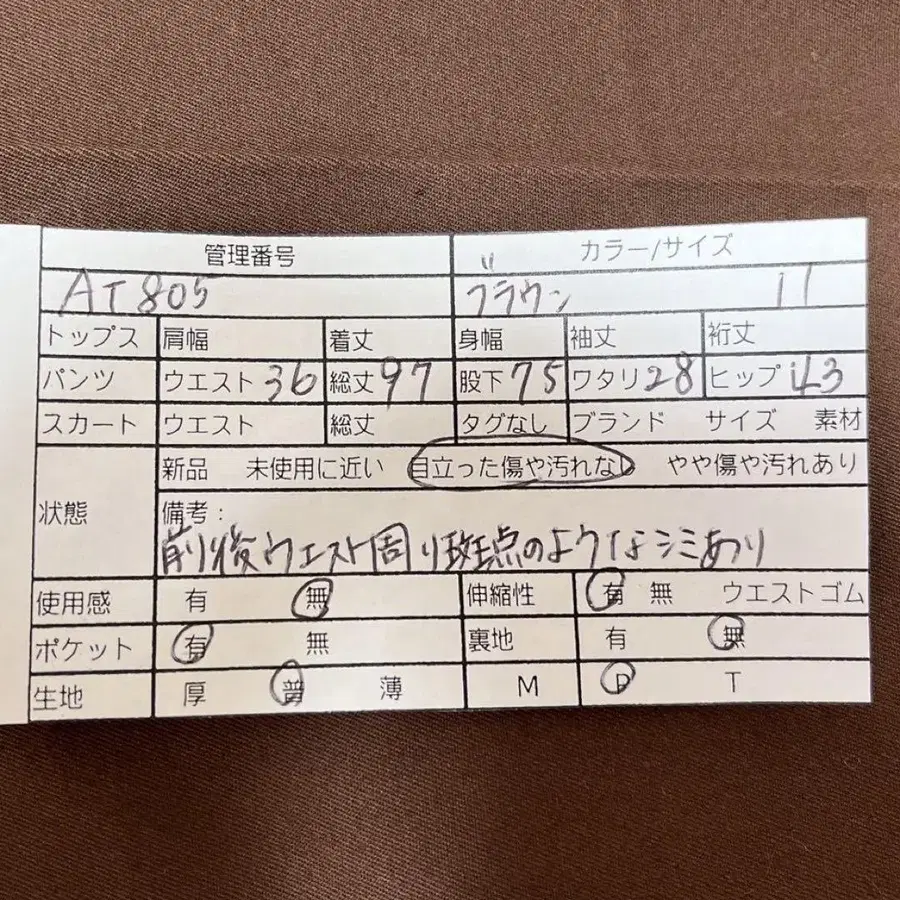 管理番号 カラー/サイズ
AT805 ブラウン 11
トップス 肩幅 着丈 身幅 袖丈 裄丈
パンツ ウエスト 36 総丈 97 股下 75 ワタリ 28 ヒップ 43
スカート ウエスト 総丈 タグなし ブランド サイズ 素材
状態 新品 未使用に近い 目立った傷や汚れなし やや傷や汚れあり
備考:
前後ウエスト周り斑点のようなシミあり
使用感 有 無 伸縮性 有 無 ウエストゴム
ポケット 有 無 裏地 有 無
生地 厚 普 薄 M P T